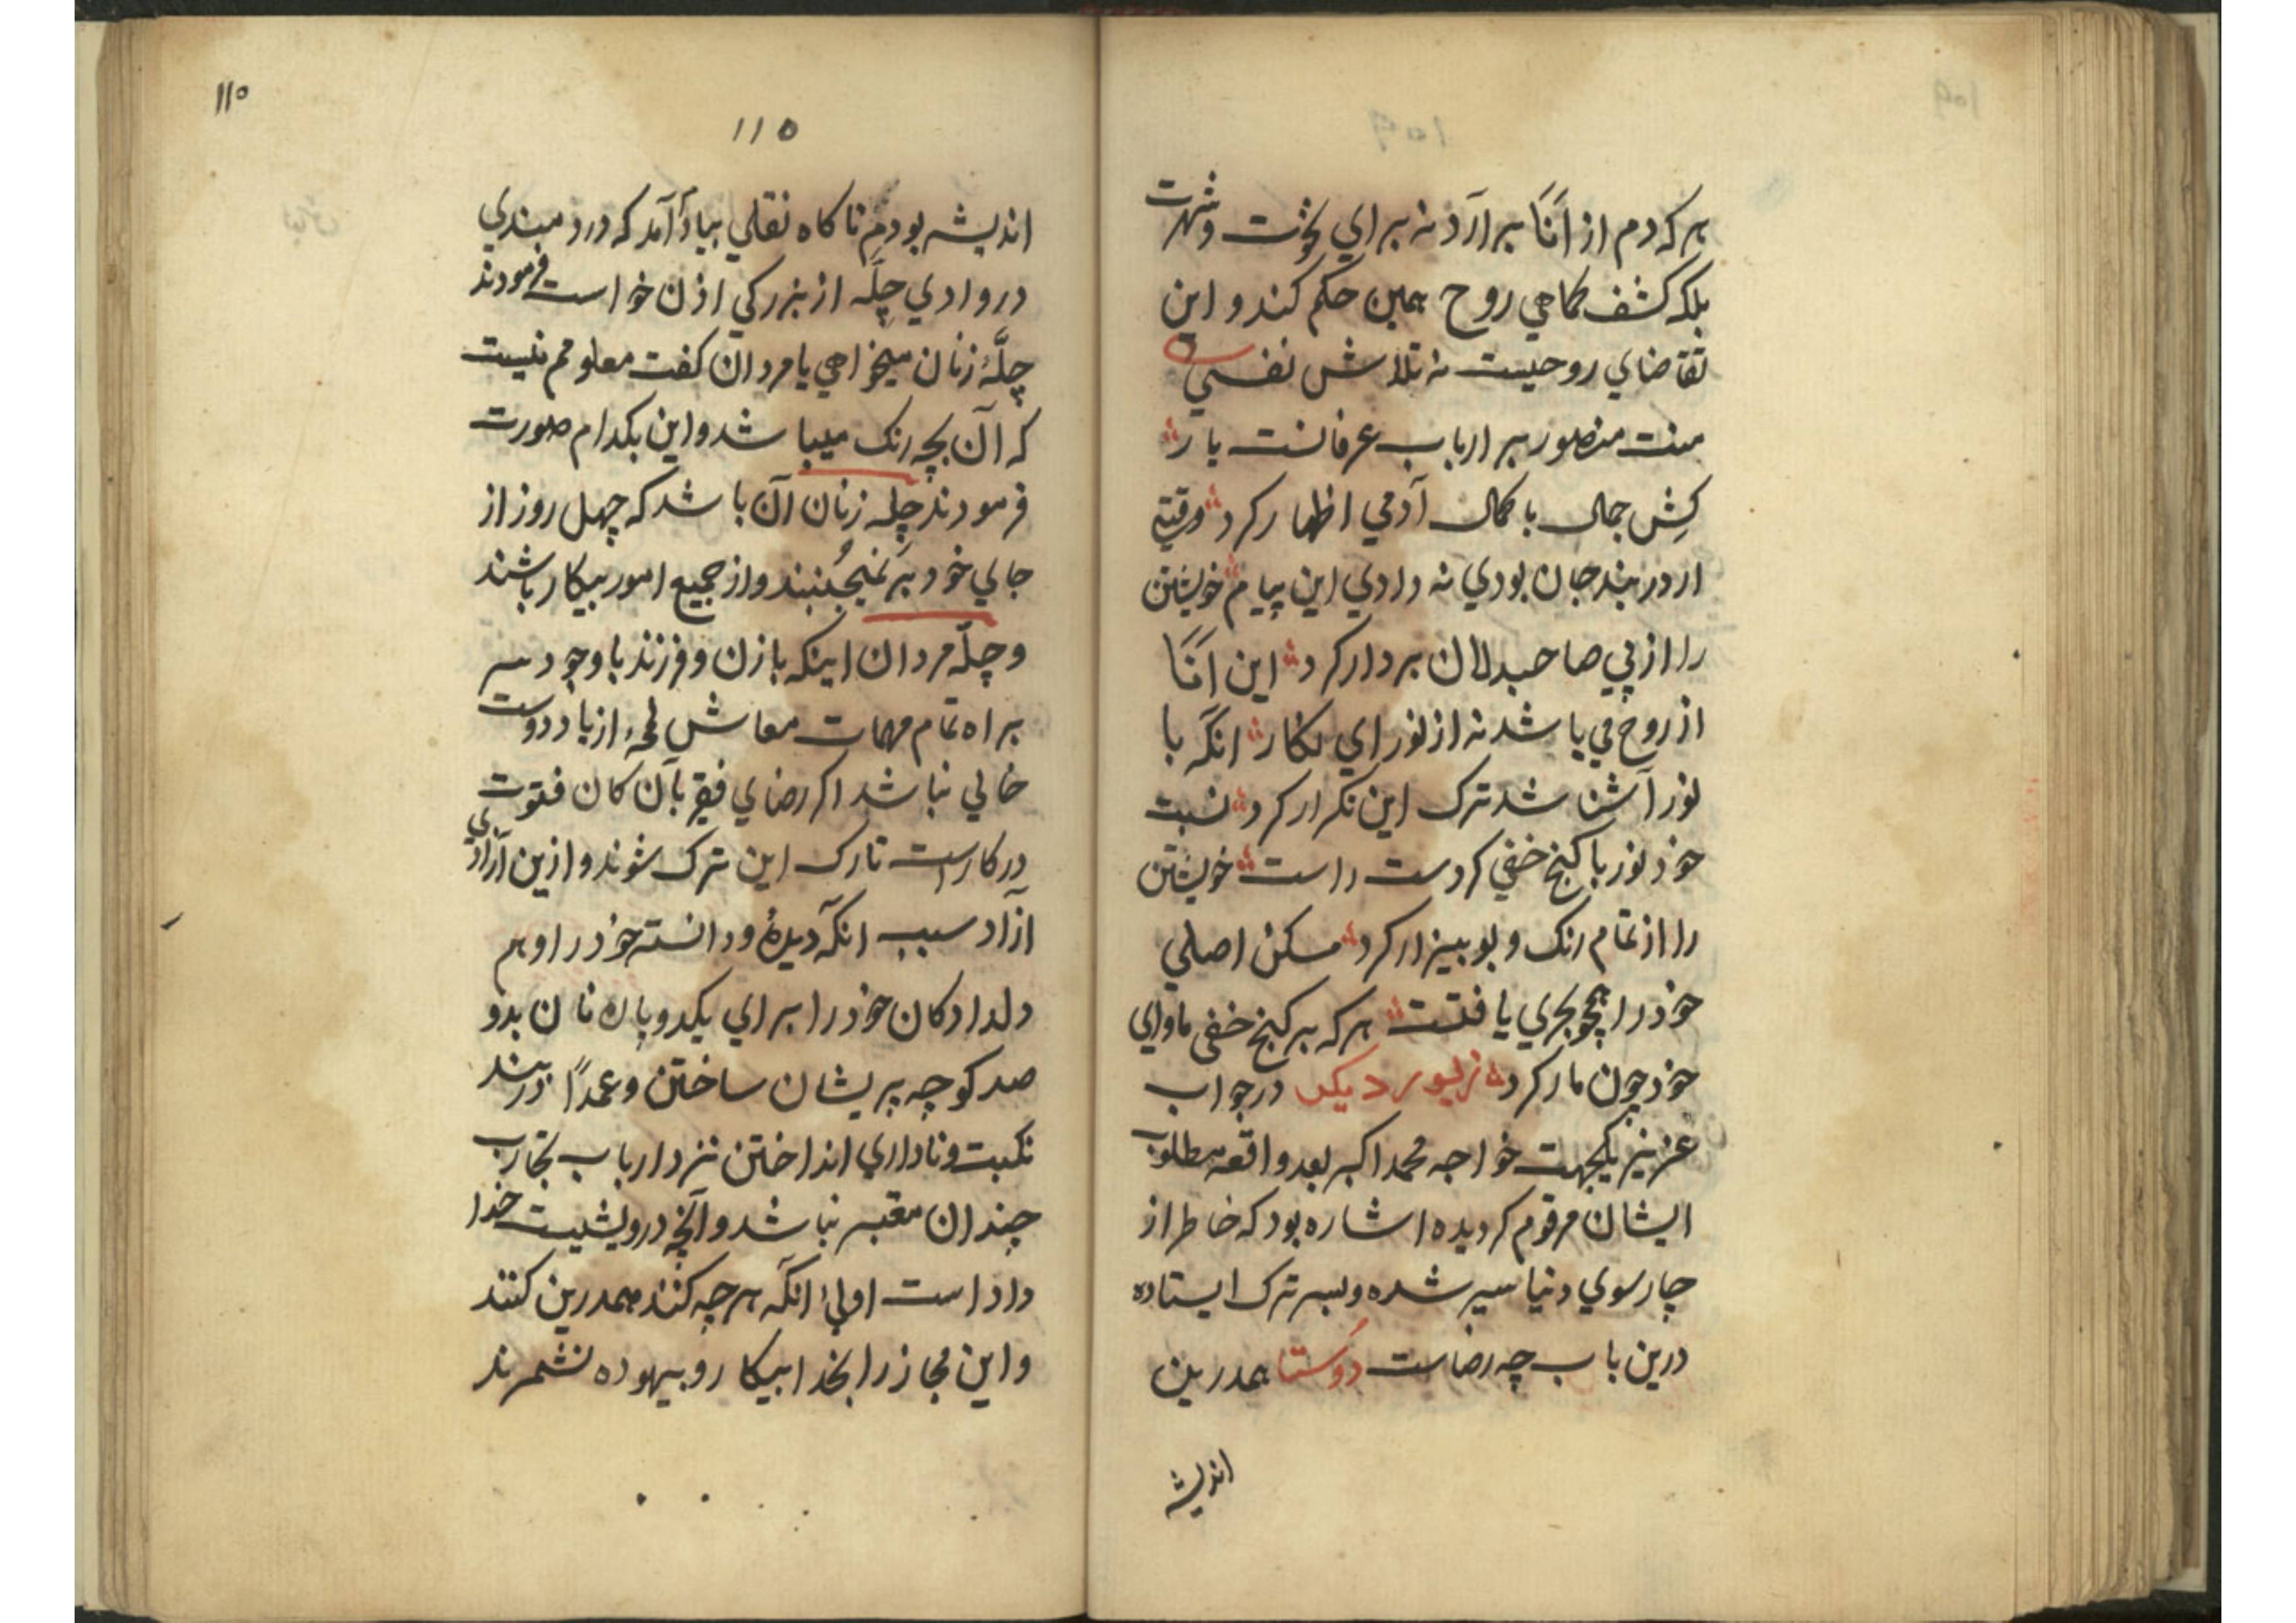 هر که دم از اَنَا برآرد نه برای نخوت و شهرت
بلکه کشف کماهی روح همین حکم کند و این
تقاضای روحیست نه تلاش نفسی
منت منصور بر ارباب عرفانست بار
کش جمال با کمال آدمی اظهار کرد
ار در بند جان بودی نه دادی این پیام خویشتن
را از پی صاحبدلان بردار کرد این اَنَا
از روح می باشد نه از نور ای نکار انکه با
نور آشنا شد ترک این تکرار کرد نسبت
خود نور با کنج خفی کردست راست خویشتن
را از تمام رنک و بو بیزار کرد مسکن اصلی
خود را همچو بحری یافتست هر که بر کنج خفی ماوای
خود چون مار کرد زیور دیکر در جواب
عزیز یکجهت خواجه محمد اکبر بعد واقعه مطلوب
ایشان مرقوم کردیده اشاره بود که خاطر از
چارسوی دنیا سیر شده و بسر ترک ایستاده
درین باب چه رضاست دوستا همدرین
اندیشه
۱۱۰
۱۱۵
اندیشه بودم ناکاه نقلی بیاد آمد که دردمندی
در وادی چلّه از بزرکی اذن خواست فرمودند
چلّهٔ زنان میخواهی یا مردان کفت معلومم نیست
که آن بچه رنک میباشد و این بکدام صورت
فرمودند چله زنان آن باشد که چهل روز از
جای خود بر نمیجُنبند و از جمیع امور بیکار باشند
و چلّه مردان اینکه با زن و فرزند با وجود سر
براه تمام مهمات معاش لمحهٔ از یاد دوست
خالی نباشد اکر رضای فقیر بآن کان فتوت
درکار است تارک این ترک شوند و ازین آزادی
آزاد سبب انکه دیدهٔ و دانسته خود را و هم
دلدادکان خود را برای یکدو پاره نان بدو
صد کوچه پریشان ساختن و عمدًا در بند
نکبت و ناداری انداختن نزد ارباب تجارب
چندان معتبر نباشد و آنچه درویشیت خدا
داد است اولیٰ انکه هرچه کنند همدرین کنند
و این مجاز را بخدا بیکار و بیهوده نشمرند